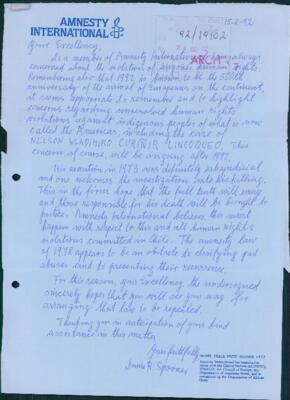 AMNESTY
INTERNATIONAL
15-2-92
92/19102
ARCH
Your Excellency,
As a member of Amnesty International I am always
concerned about the violation of anyone's human rights.
Remembering also that 1992 is known to be the 500th
anniversary of the arrival of Europeans on the continent,
it seems appropriate to remember and to highlight
concerns regarding unresolved human rights
violations against indigenous peoples of what is now
called the Americas, including the case of
NELSON WLADIMIRO CURIÑIR LINCOQUEO. This
concern, of course, will be ongoing after 1992.
His execution in 1973 was definitely extrajudicial
and one welcomes the investigation into the killing.
This in the firm hope that the full truth will emerge
and those responsible for his death will be brought to
justice. Amnesty International believes this must
happen with respect to this and all human rights
violations committed in Chile. The amnesty law
of 1978 appears to be an obstacle to clarifying past
abuses and to preventing their recurrence.
For this reason, your Excellency, the undersigned
sincerely hopes that you will see your way for
arranging that law to be repealed.
Thanking you in anticipation of your kind
assistance in this matter
Yours faithfully
R. Spooner